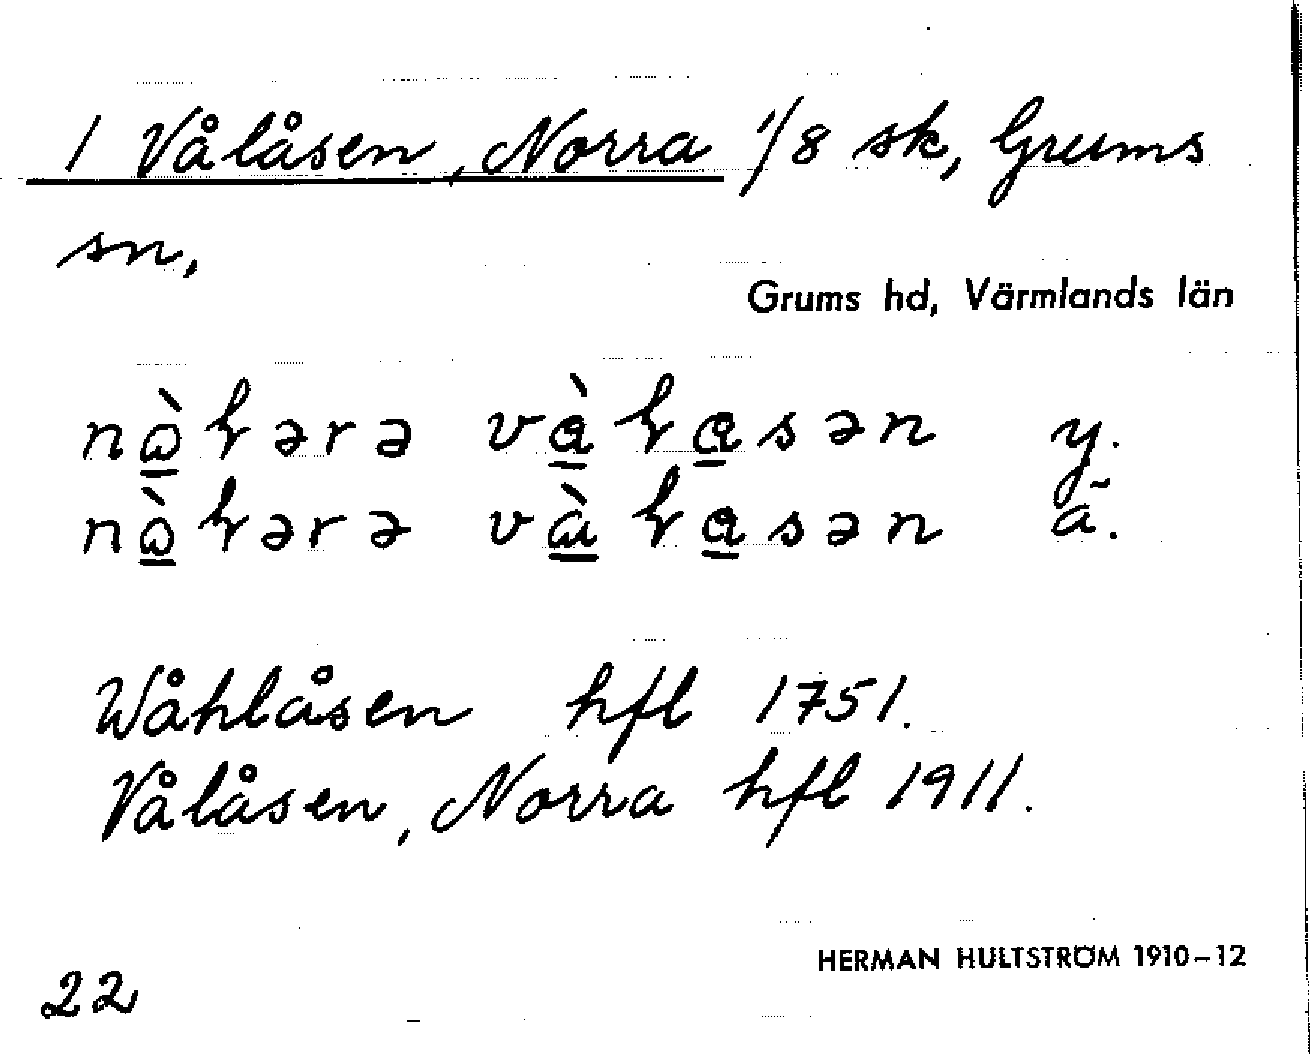 1 Vålåsen, Norra 1/8 sk, Grums
sn,
Grums hd, Värmlands län
y.
ä.
Wåhlåsen hfl 1751.
Vålåsen, Norra hfl 1911.
HERMAN HULTSTRÖM 1910–12
22